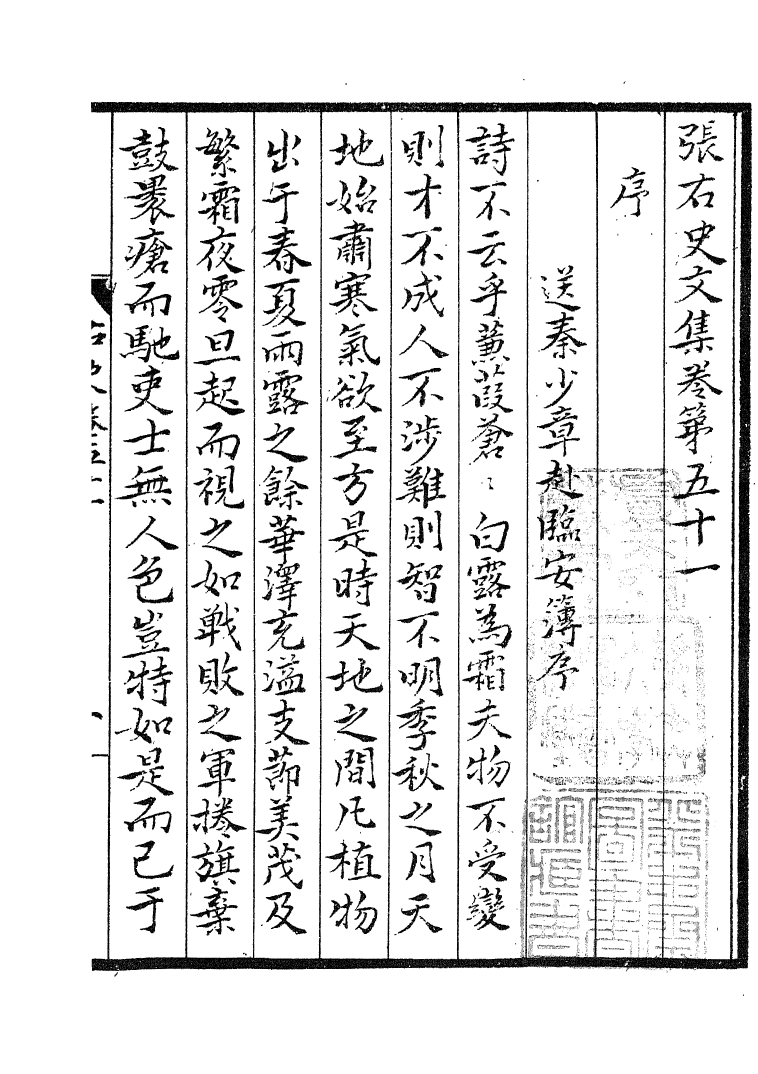 張右史文集卷第五十一
序
送秦少章赴臨安簿序
詩不云乎蒹葭蒼〻白露為霜夫物不受變
則才不成人不涉難則智不明季秋之月天
地始肅寒氣欲至方是時天地之間凡植物
出于春夏雨露之餘華澤充溢支莭美茂及
繁霜夜零旦起而視之如戦敗之軍捲旗棄
鼓褁瘡而馳吏士無人色豈特如是而已于